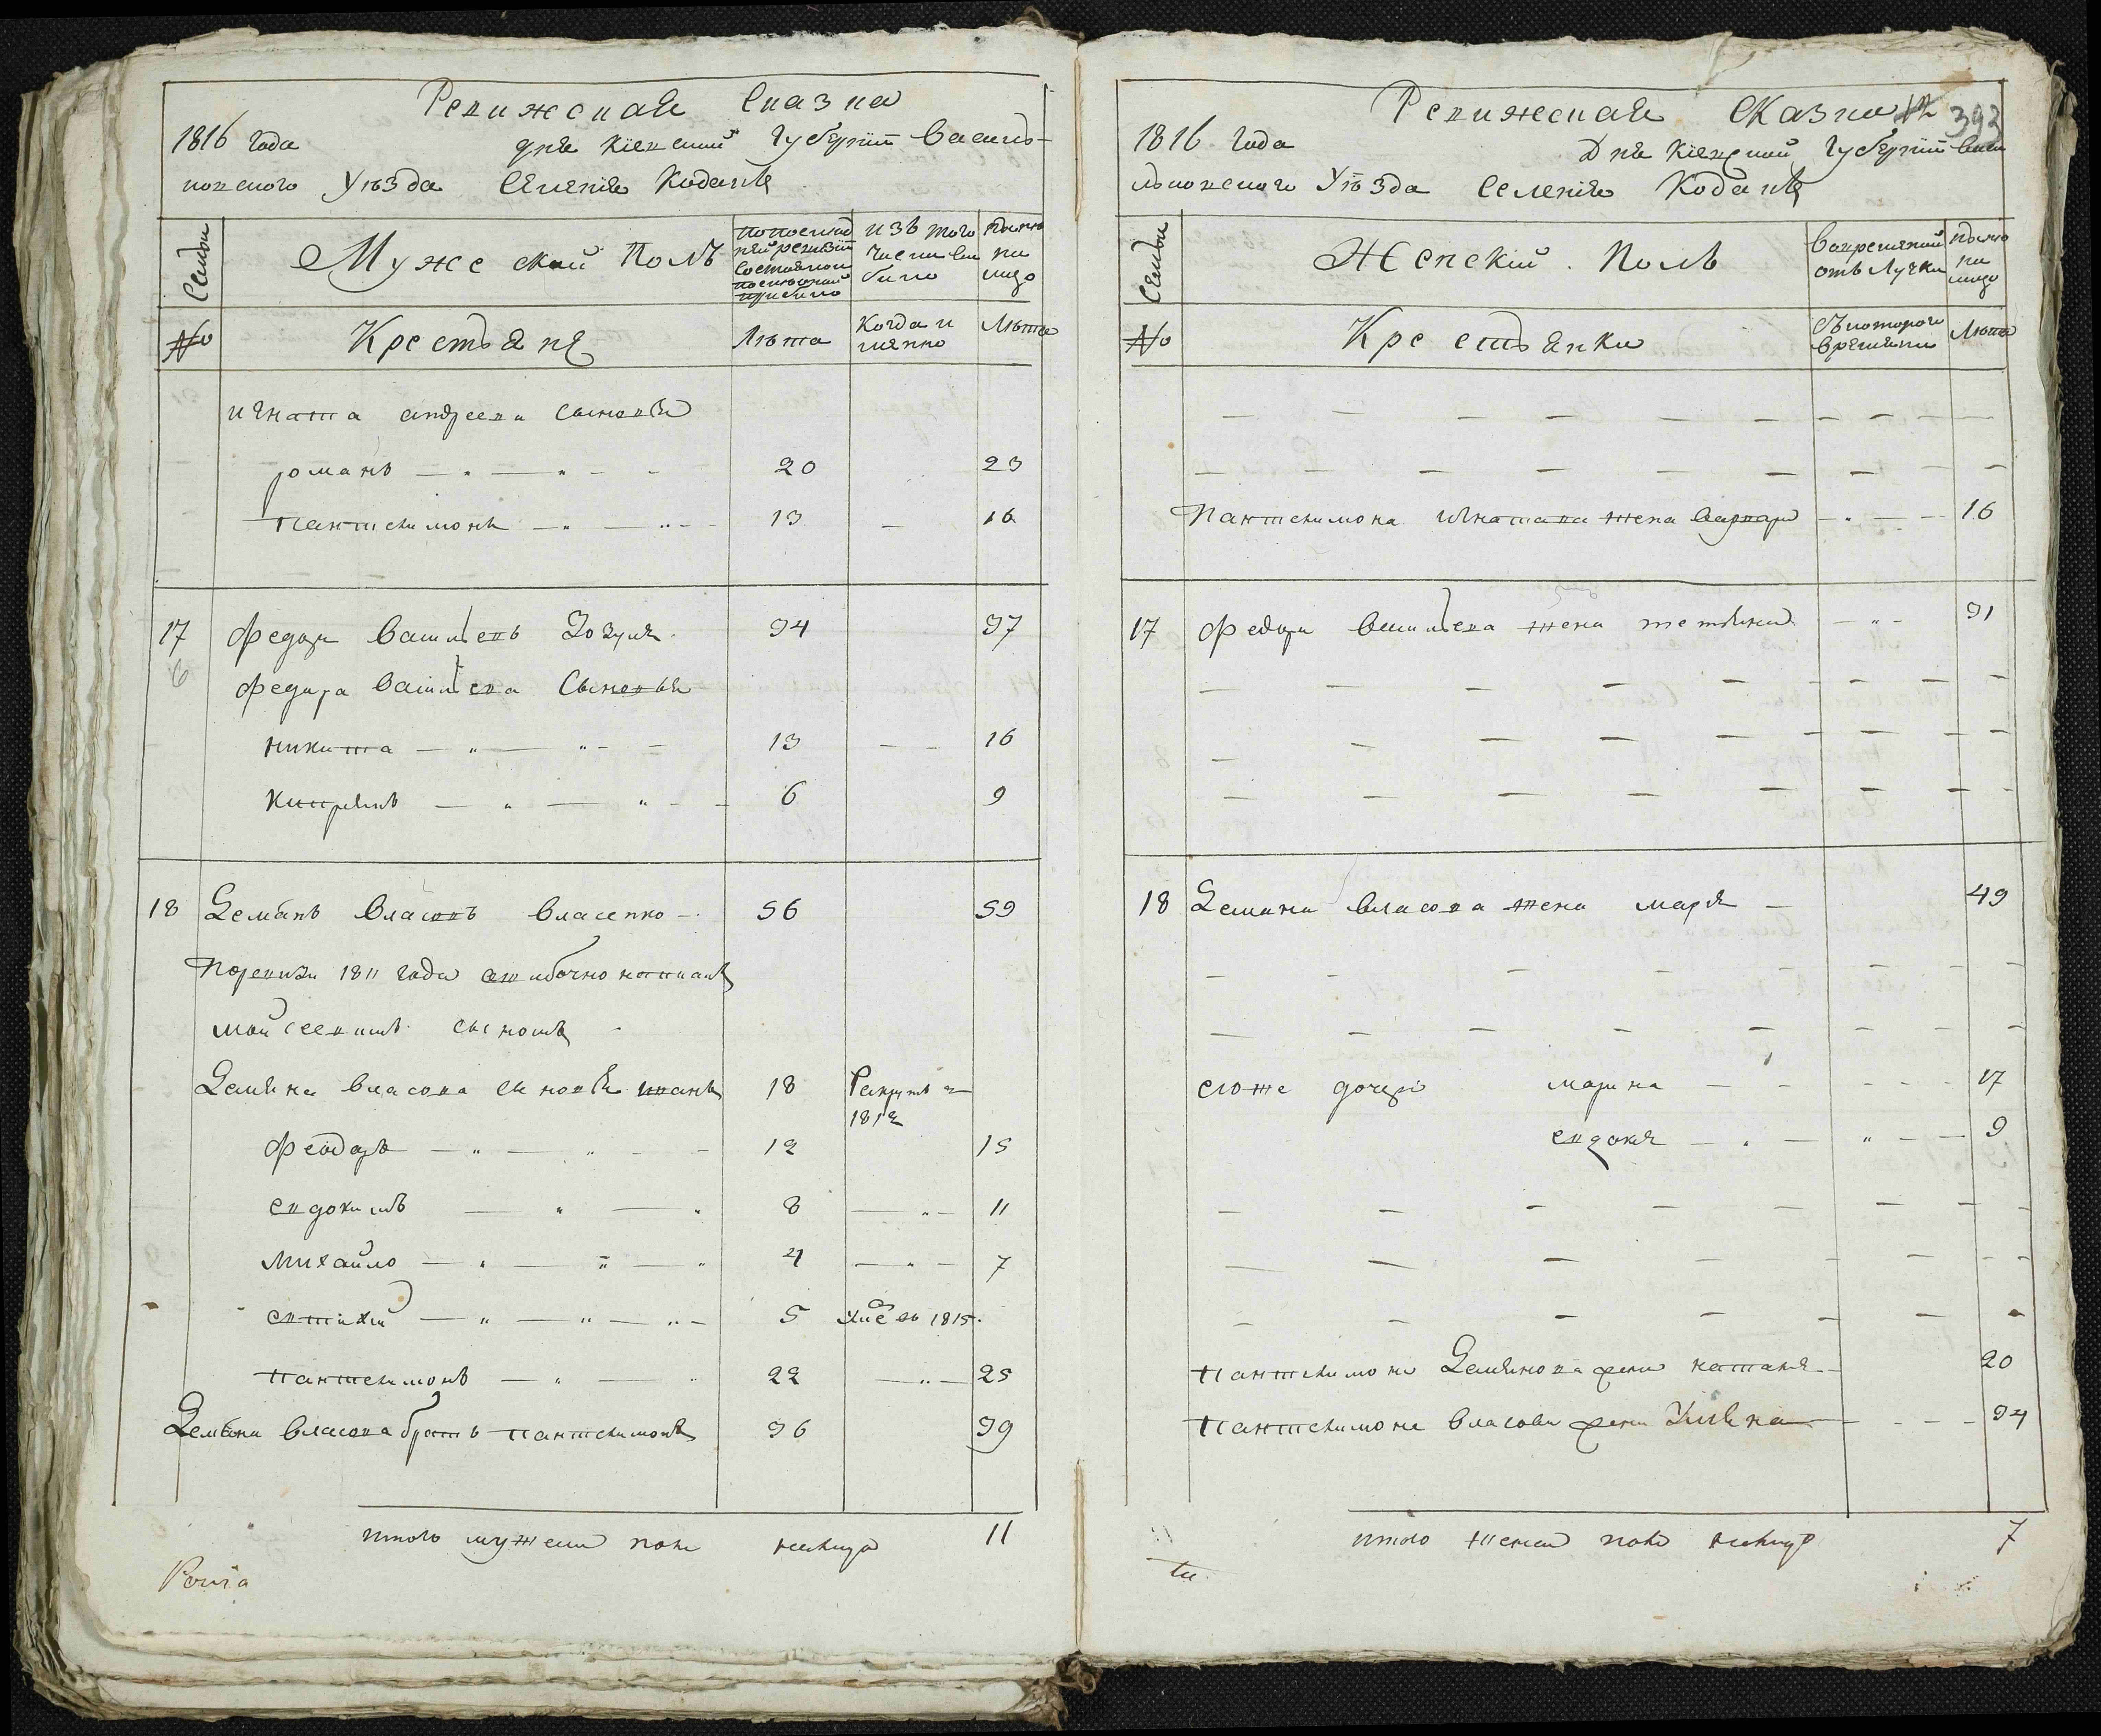 Ревижская Сказка
1816 года дня Кіевской Губерніи Василь-
ковского Уѣзда Селенія Коданкѣ
Семьи
Мужеской Полъ
По последней ревизіи состояло и после оной прибыло
изъ того числа выбыло
Ныне на лицо
№
Крестьяне
Лѣта
Когда и именно
Лѣта
игната андреева сыновья
романъ 20 23
пантелимонъ 13 16
17 федоръ Васильевъ Зозуля 34 37
6
федора Васильева Сыновья
никита 13 16
Киприянъ 6 9
18 Демянъ Власовъ Власенко 56 59
По ревизіи 1811 года ошибочно написанъ
мойсеевимъ сыномъ
Демяна Власова сыновья иванъ 18 Рекрутъ в 1812
Феодоръ 12 15
евдокимъ 8 11
Михайло 4 7
евтихій 5 Умре въ 1815
пантелимонъ 22 25
Демяна Власова братъ пантелимонъ 36 39
итого мужеска пола налицо 11
Ревижская Сказка
393
1816 года Дня Кіевской Губерніи Васи
льковского Уѣзда Селенія Коданкѣ
Семьи
Женскій Полъ
Во временной отълучки
Ныне на лицо
№
Крестьянки
Съ которого времени
Лѣта
Пантелимона Игнатова жена Варвара 16
17 Федора Васильева жена тетяна 31
18 Демяна Власова жена марья 49
егоже дочери марина 17
евдокія 9
пантелимона Демянова жена наталя 20
пантелимона Власова жена Уляна 34
итого женска пола налицо 7